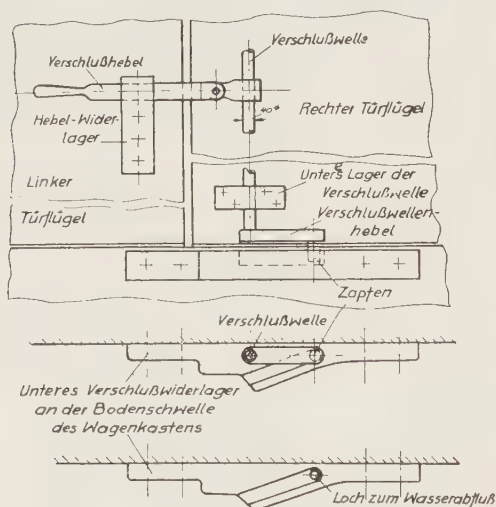 Verschlußhebel
Verschlußwelle
40⌀
Hebel-Wider-
lager
Rechter Türflügel
Linker
Türflügel
Unterͤs Lager der
Verschlußwelle
Verschlußwellen-
hebel
Zapfen
Verschlußwelle
Unteres Verschlußwiderlager
an der Bodenschwelle
des Wagenkastens
Loch zum Wasserabfluß